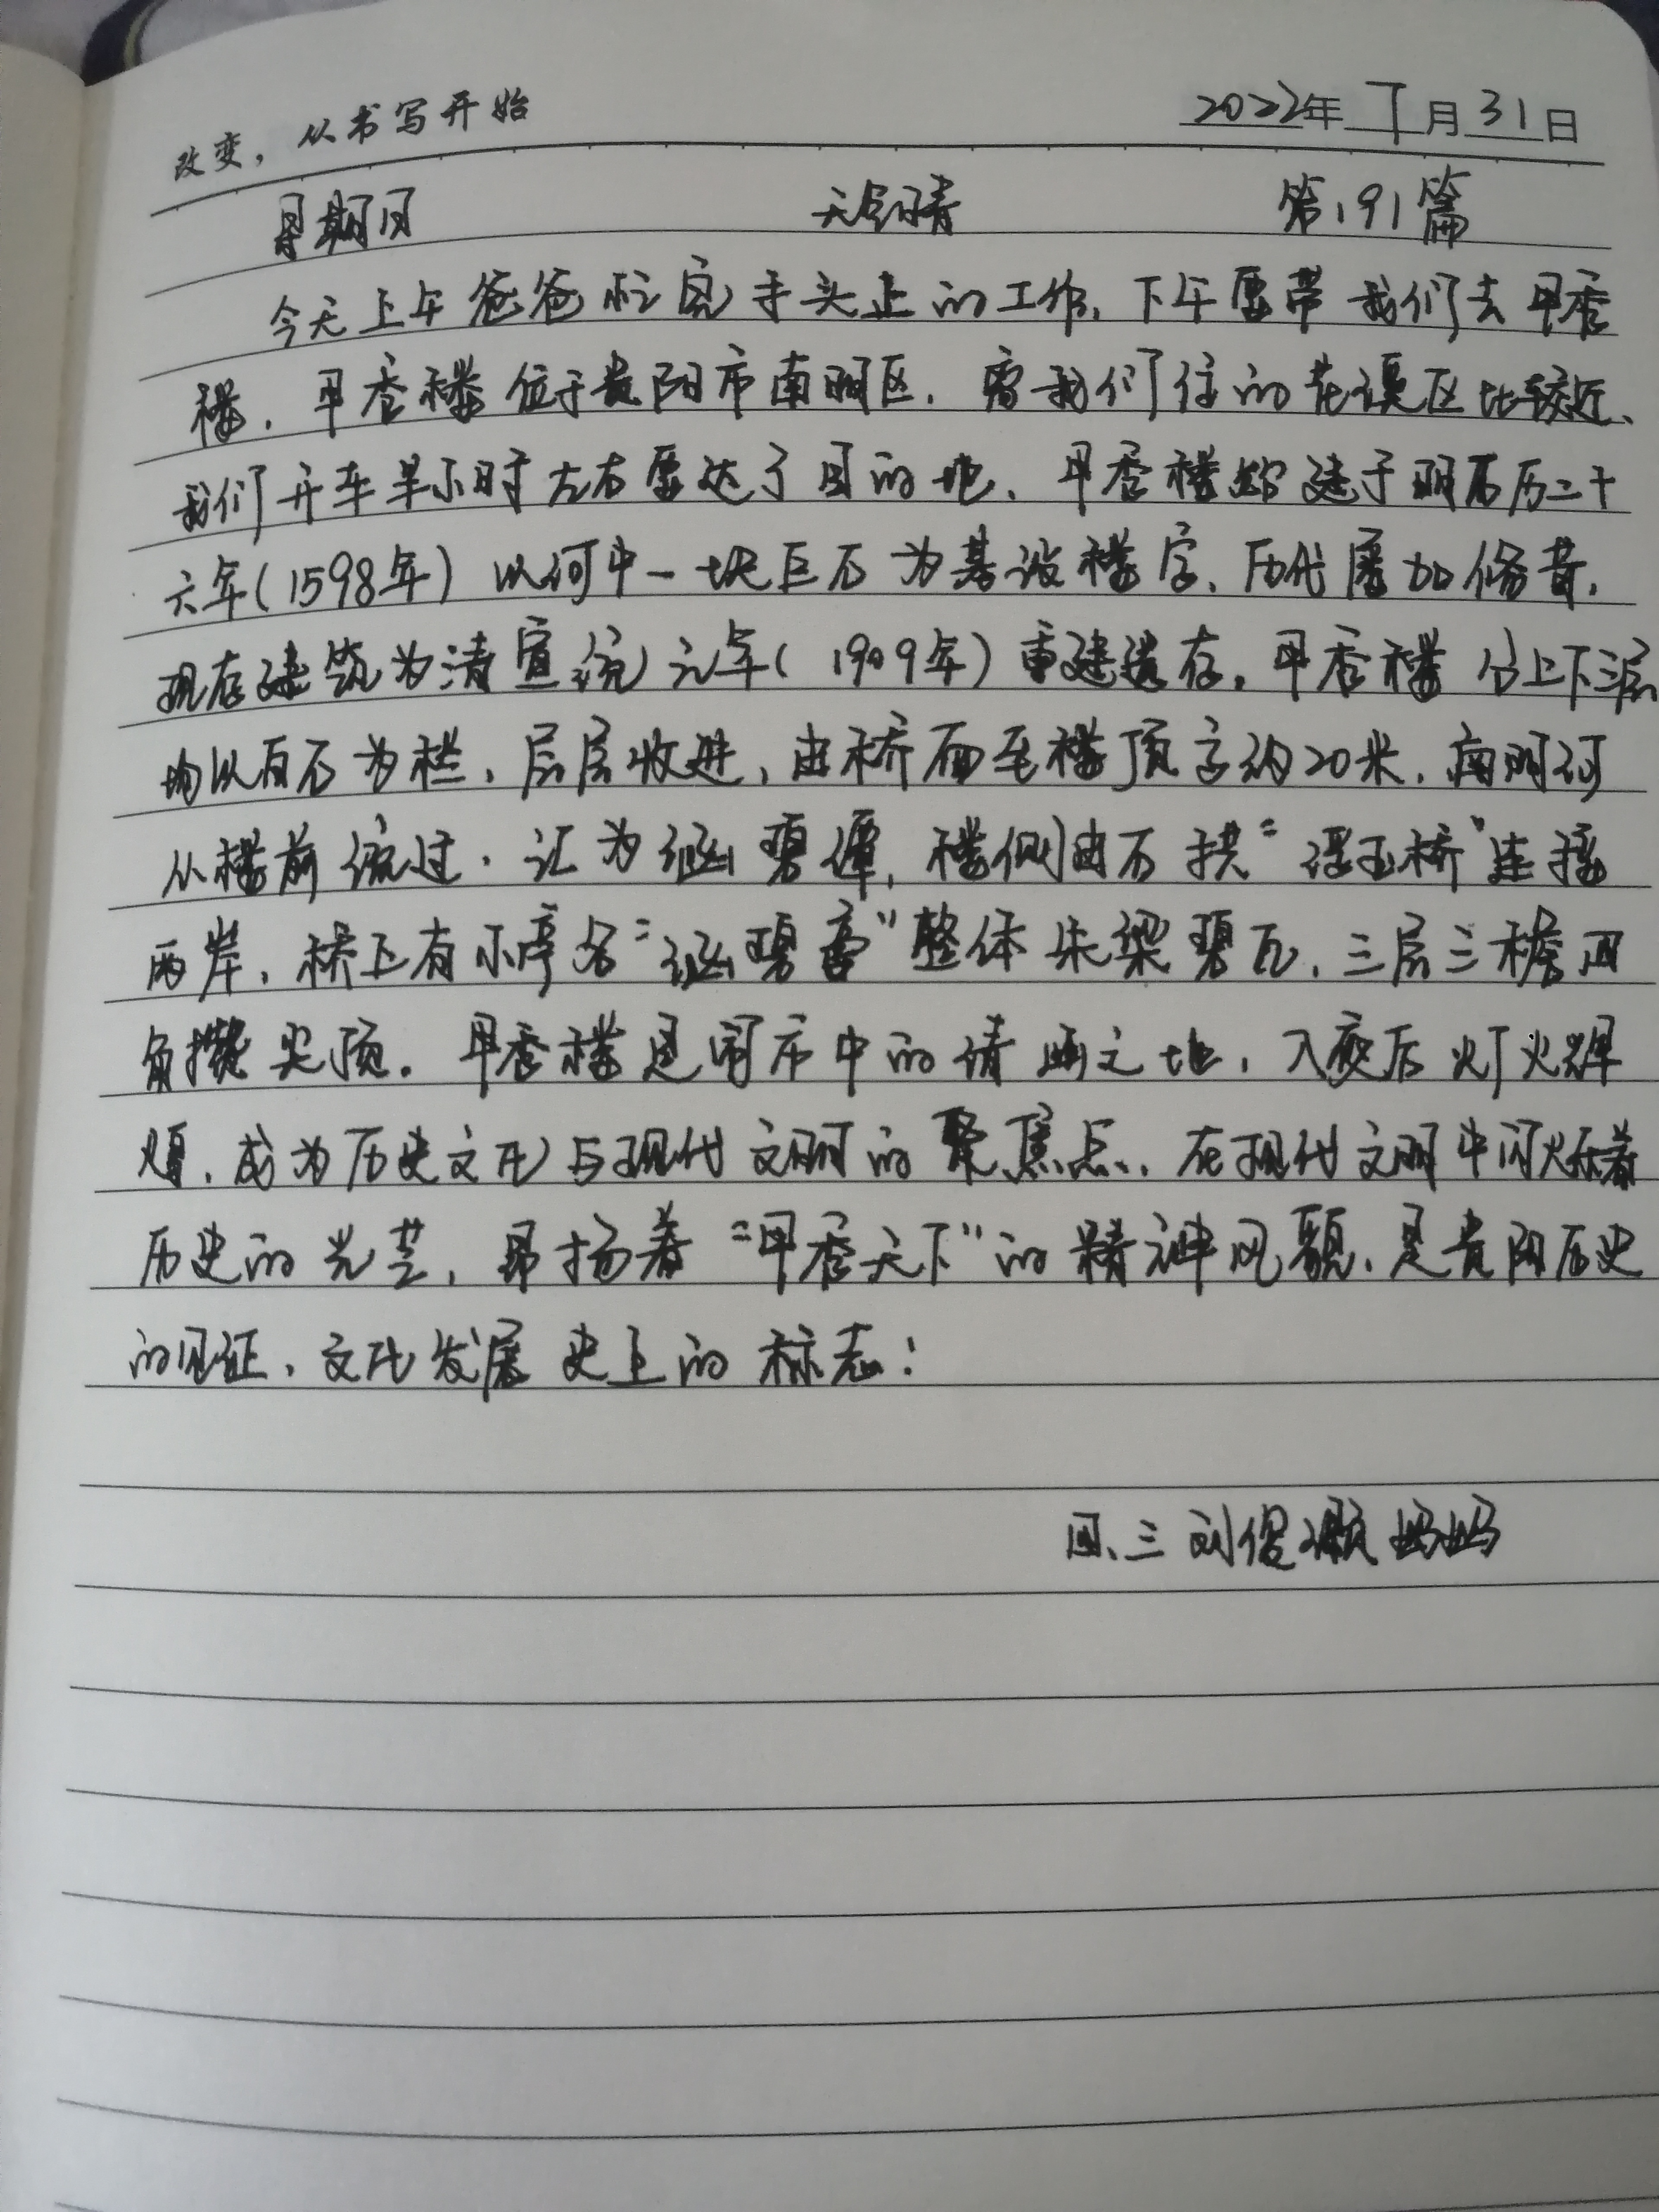 改变，从书写开始
2022年 7月 31日
星期日 天气晴 第191篇
今天上午爸爸忙完手头上的工作，下午要带我们去甲秀
楼，甲秀楼位于贵阳市南明区，离我们住的花溪区比较近、
我们开车半小时左右要达了目的地、甲秀楼始建于明万历二十
六年（1598年）以河中一块巨石为基设楼宇、历代屡加修葺，
现存建筑为清宣统元年（1909年）重建遗存，甲秀楼分上下三层
均以白石为栏、层层收进，由桥面至楼顶高约20米，南明河
从楼前流过，汇为涵碧潭，楼侧由石拱“浮玉桥”连接
两岸，桥上有小亭名“涵碧亭”整体朱梁碧瓦，三层三檐四
角攒尖顶。甲秀楼是闹市中的清幽之地，入夜后灯火辉
煌，成为历史文化与现代文明的聚焦点、在现代文明中闪烁着
历史的光芒，昂扬着“甲秀天下”的精神风貌、是贵阳历史
的见证、文化发展史上的标志！
四、三 刘俊灏妈妈